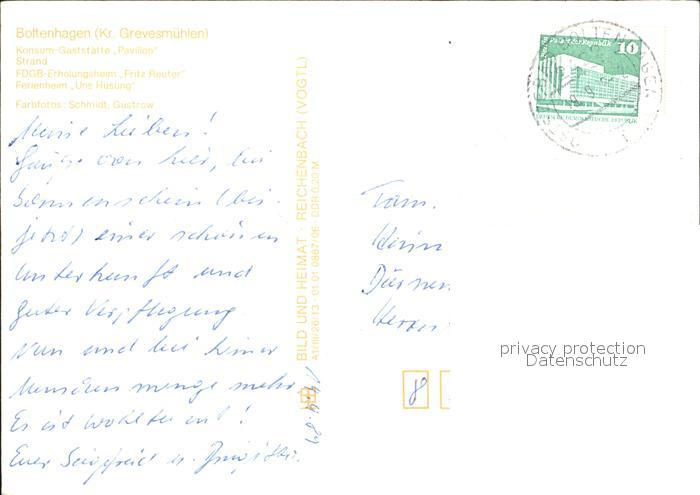 Boltenhagen (Kr. Grevesmühlen)
Konsum-Gaststätte „Pavillon“
Strand
FDGB-Erholungsheim „Fritz Reuter“
Ferienheim „Uns Hüsung“
Farbfotos: Schmidt, Güstrow
Meine Lieben!
Grüße von hier, bei
Sonnenschein (bis
jetzt) einer schönen
Unterkunft und
guter Verpflegung.
Nun und bei
Menschen menge mehr.
Es ist
Euer Siegfried u. Brigitte.
14.4.89
BILD UND HEIMAT · REICHENBACH (VOGTL)
A1/III/26/13 · 01 01 0887/06 · DDR 0,20 M
10
DEUTSCHE DEMOKRATISCHE REPUBLIK
BOLTENHAGEN
Fam.
8
privacy protection
Datenschutz